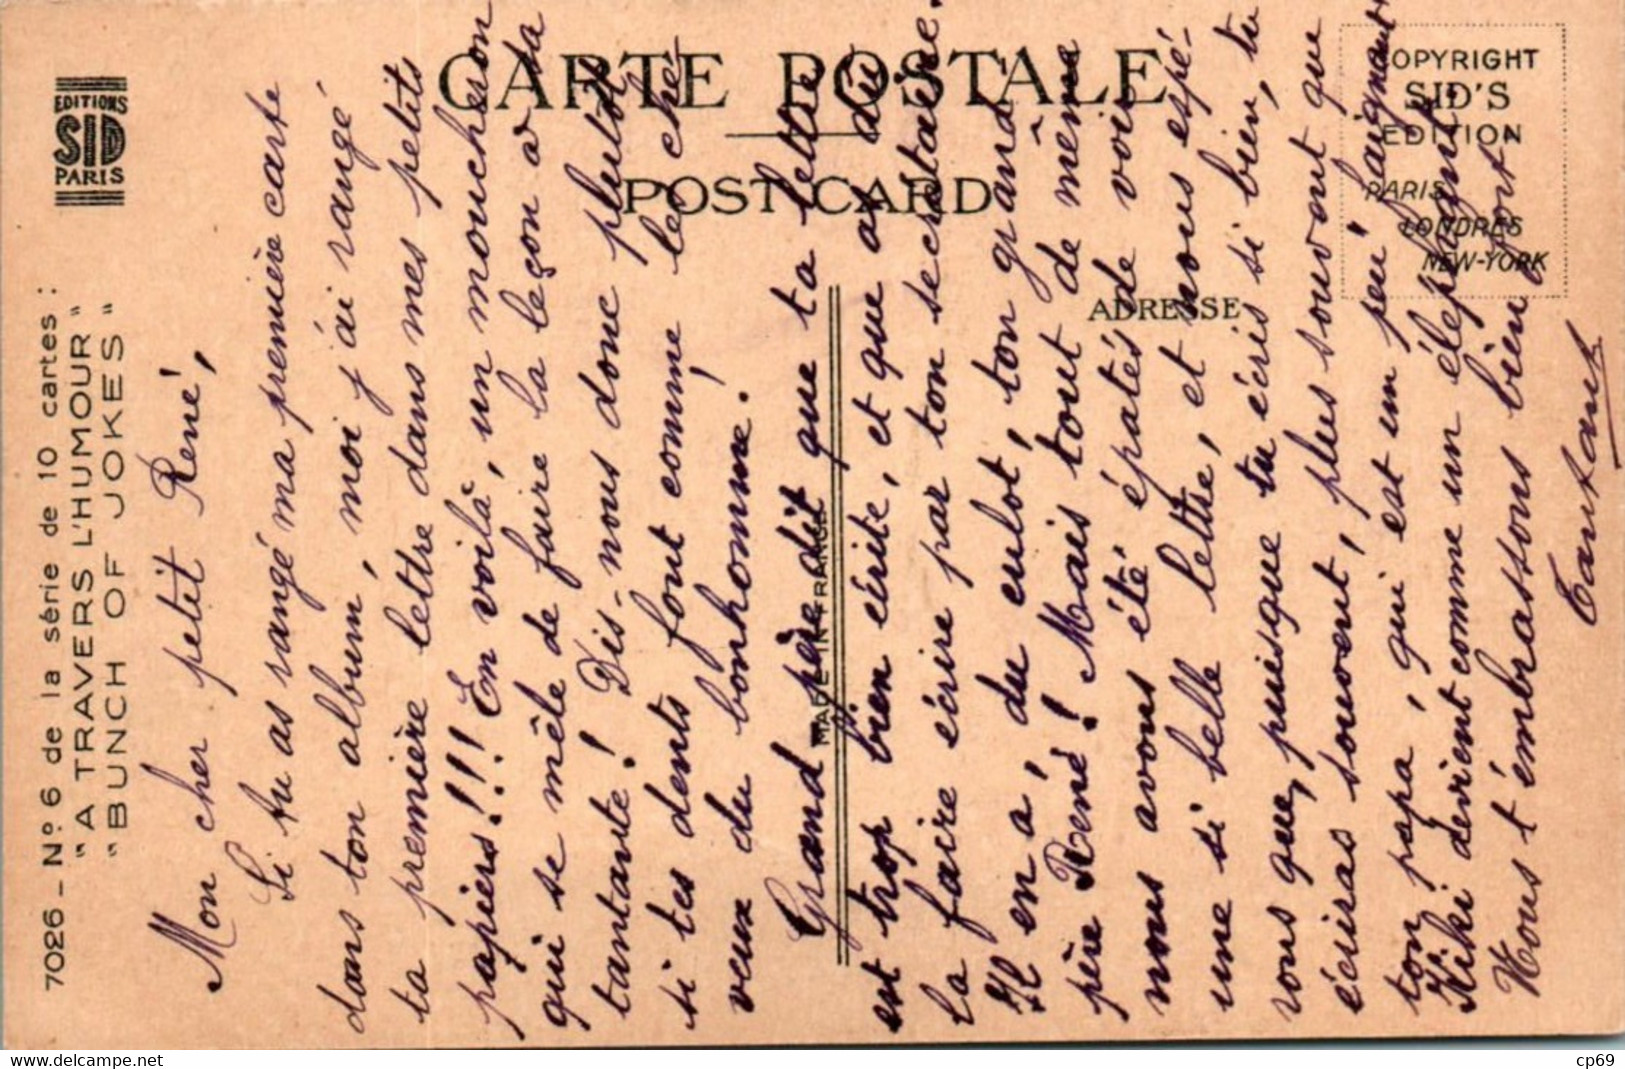 CARTE POSTALE
POST CARD
ADRESSE
COPYRIGHT
SID'S
EDITION
PARIS
LONDRES
NEW-YORK
EDITIONS
SID
PARIS
7026 - No 6 de la série de 10 cartes :
"A TRAVERS L'HUMOUR"
"BUNCH OF JOKES"
MADE IN FRANCE
Mon cher petit René,
Si tu as rangé ma première carte
dans ton album, moi j'ai rangé
ta première lettre dans mes petits
papiers!!! En voilà, un moucheron
qui se mêle de faire la leçon à ta
tantante! Dis-nous donc plutôt
si tes dents font comme les che
veux du bonhomme!
Grand-père dit que ta lettre
est trop bien écrite, et que as dû
la faire écrire par ton secrétaire.
Il en a, du culot, ton grand
père René! Mais tout de même
nous avons été épatés de voir
une si belle lettre, et nous espé-
rons que, puisque tu écris si bien, tu
écriras souvent, plus souvent que
ton papa, qui est un peu faignant
Kiki devient comme un éléphant
Nous t'embrassons bien fort
Tantant
cp69